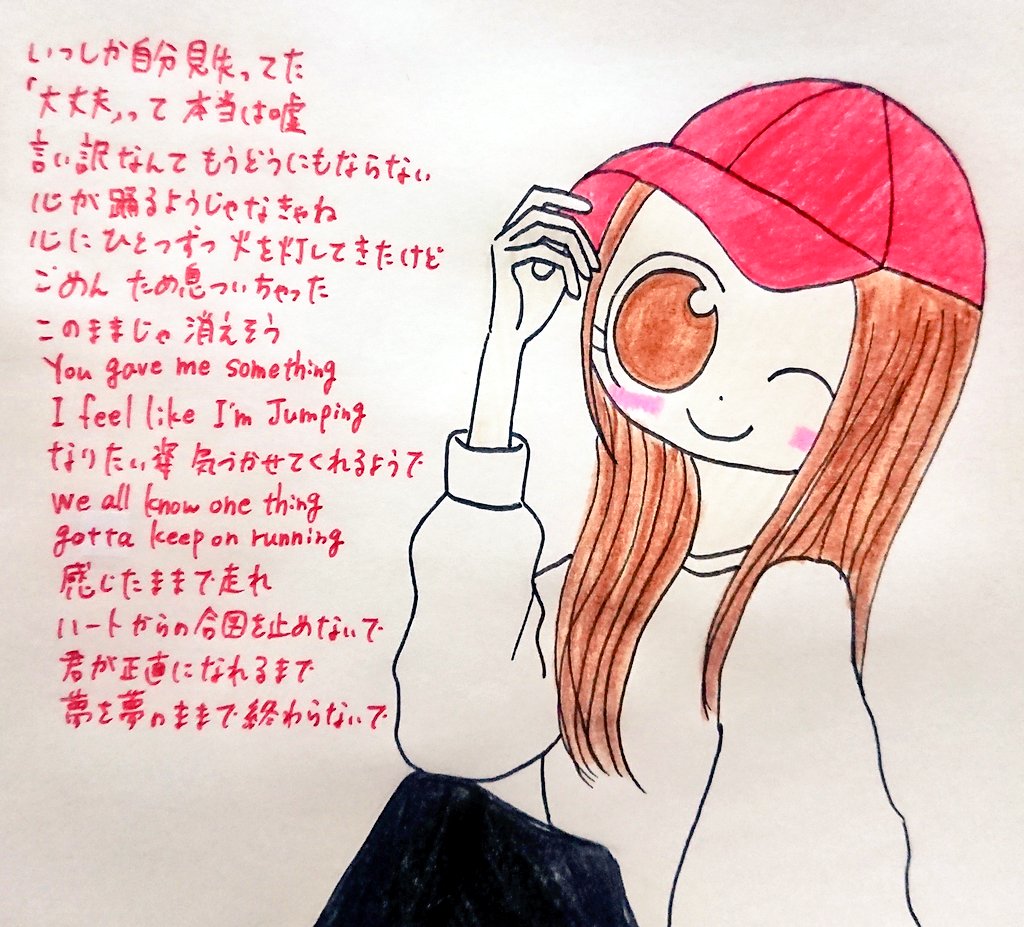 いっしか自分見失ってた
「大丈夫」って 本当は嘘
言い訳なんて もうどうにもならない
心が踊るようじゃなきゃね
心に ひとつずつ 火を灯してきたけど
ごめん ため息ついちゃった
このままじゃ 消えそう
You gave me something
I feel like I'm Jumping
なりたい姿 気づかせてくれるようで
we all know one thing
gotta keep on running
感じたままで走れ
ハートからの合図を止めないで
君が正直になれるまで
夢を夢のままで終わらないで